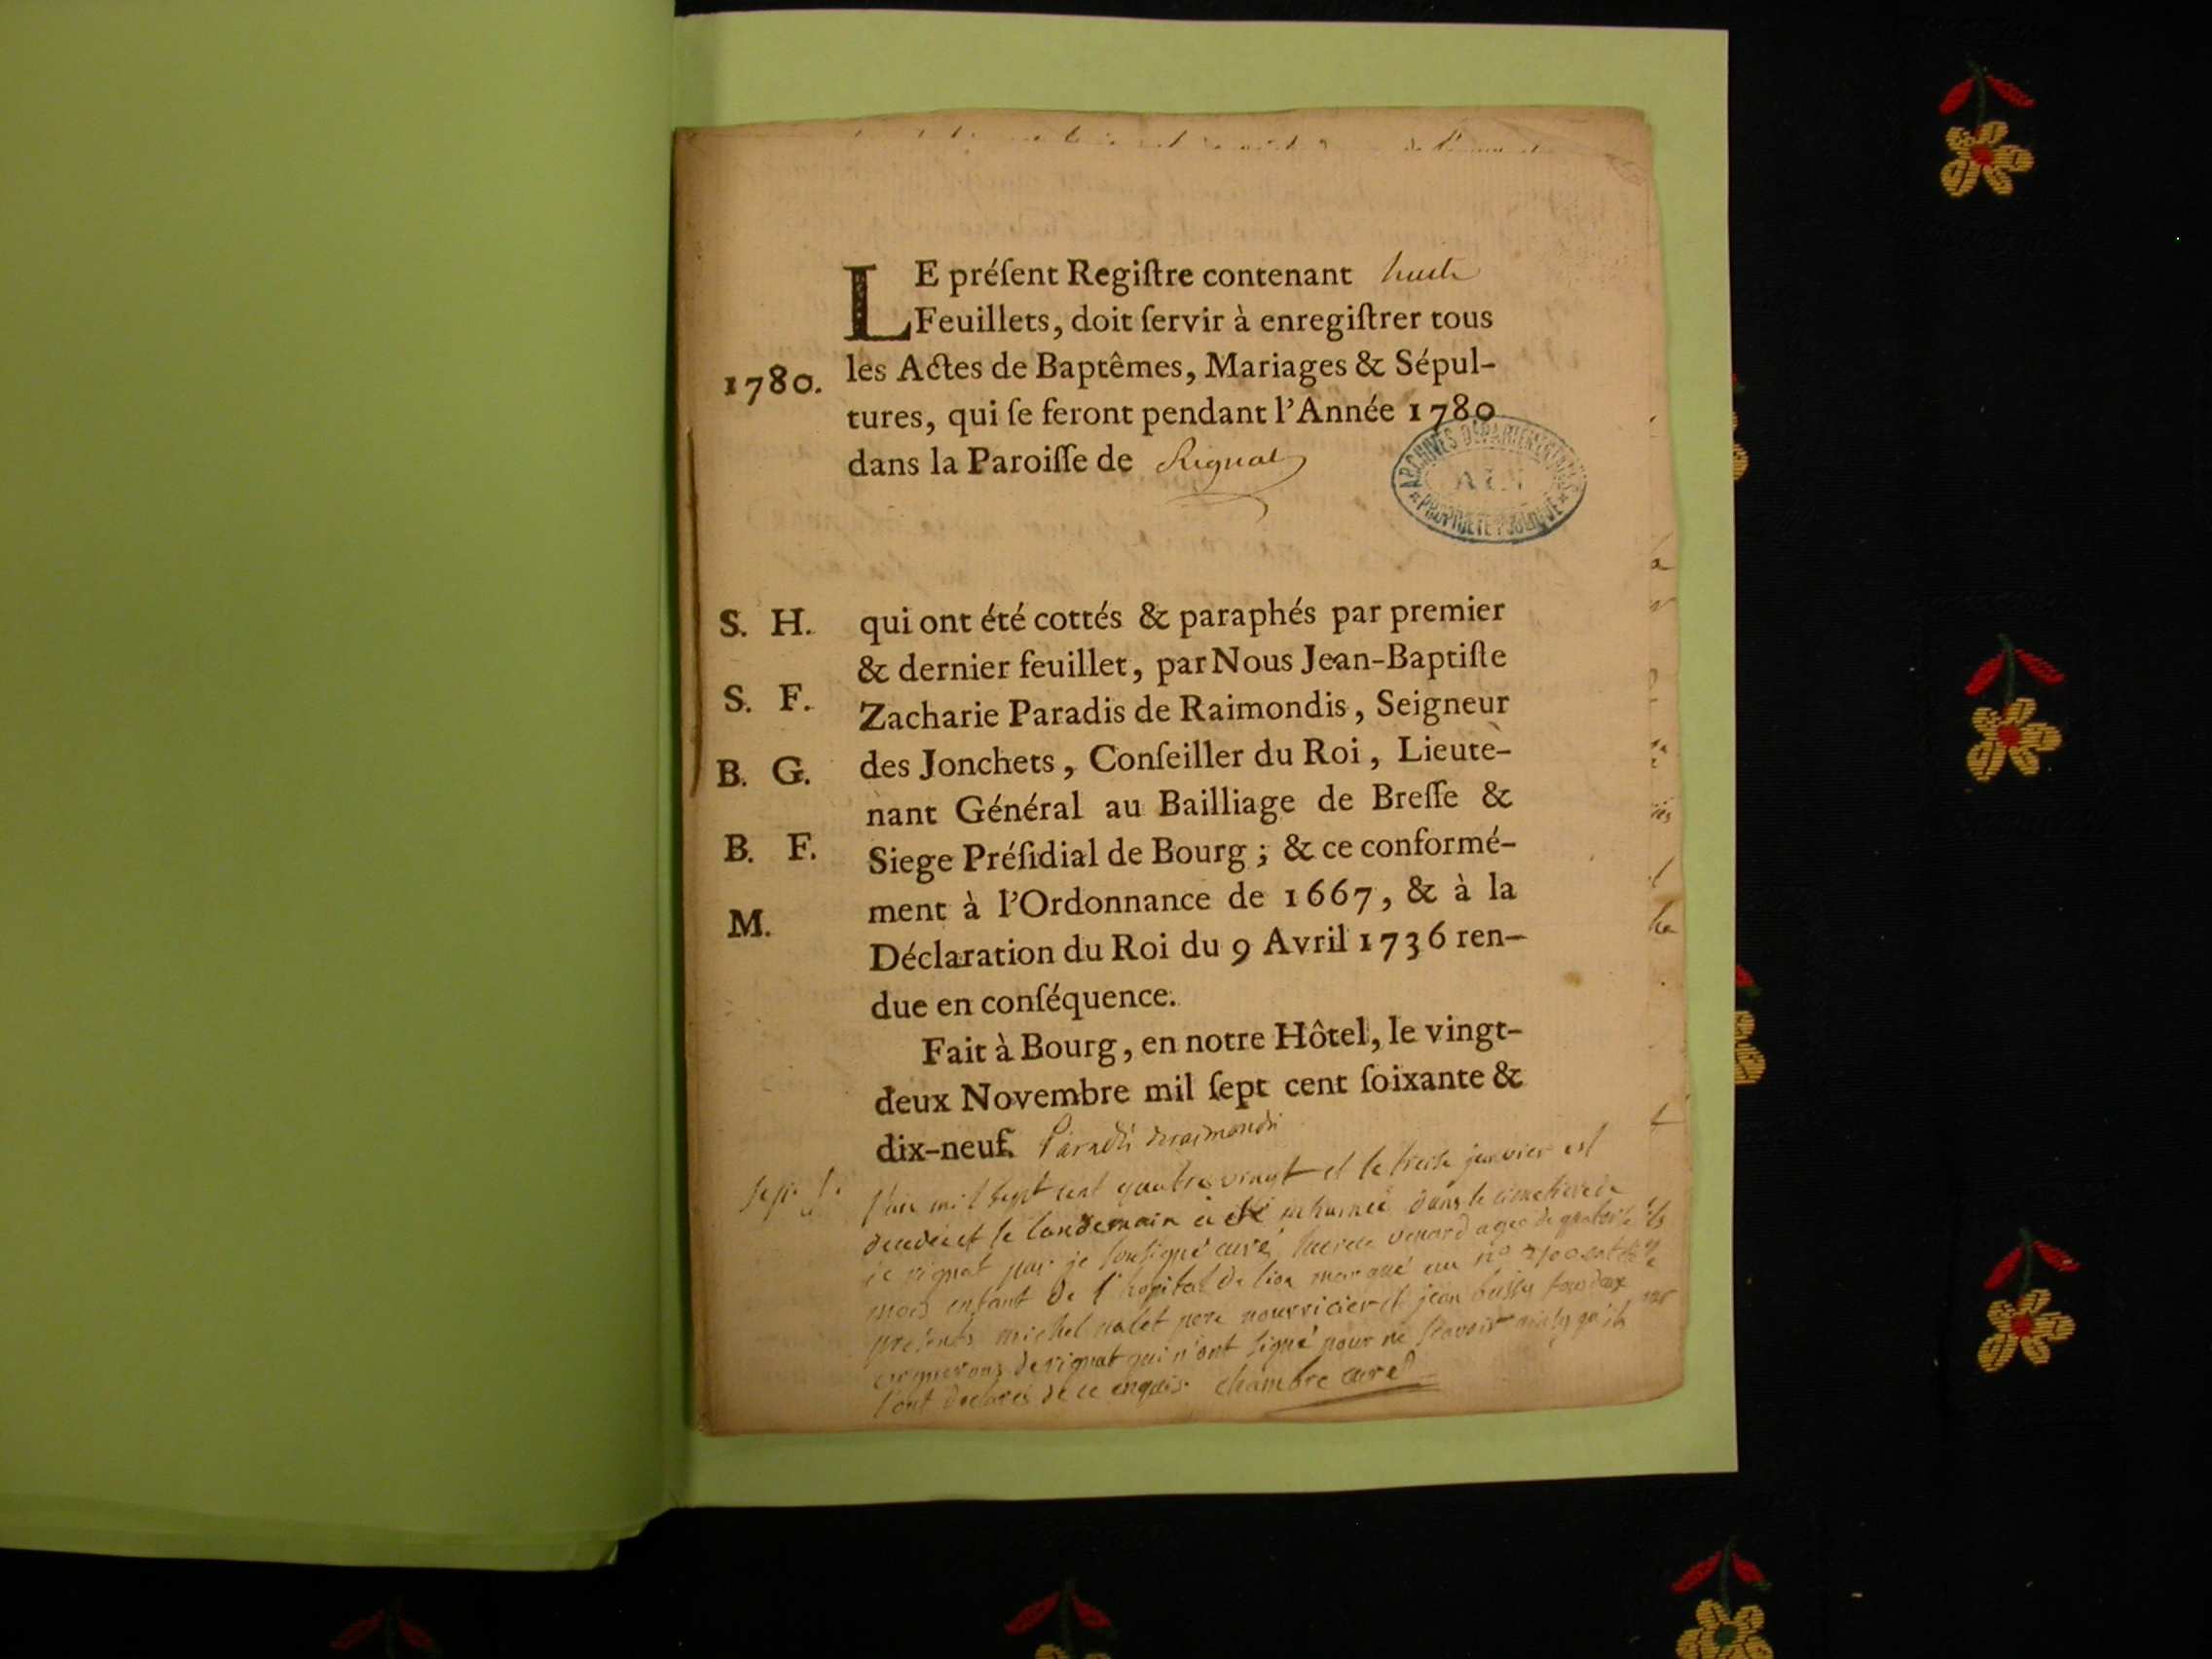 LE préſent Regiſtre contenant huit
Feuillets, doit ſervir à enregiſtrer tous
1780.
les Actes de Baptêmes, Mariages & Sépul-
tures, qui ſe feront pendant l'Année 1780
dans la Paroiſſe de Rignat
ARCHIVES DÉPARTEMENTALES
AIN
PROPRIÉTÉ PUBLIQUE
S. H.
qui ont été cottés & paraphés par premier
& dernier feuillet, par Nous Jean-Baptiſte
S. F.
Zacharie Paradis de Raimondis, Seigneur
B. G.
des Jonchets, Conſeiller du Roi, Lieute-
nant Général au Bailliage de Breſſe &
B. F.
Siege Préſidial de Bourg; & ce conformé-
M.
ment à l'Ordonnance de 1667, & à la
Déclaration du Roi du 9 Avril 1736 ren-
due en conſéquence.
Fait à Bourg, en notre Hôtel, le vingt-
deux Novembre mil ſept cent ſoixante &
dix-neuf. Paradis deraimondis
l'an mil sept cent quatre vingt et le treize janvier est
decedé et le landemain a eté inhumée dans le cimetiere de
rignat par je soussigné curé venard agée de quatorze
mois enfant de l'hopital de lion marqué au n°
presents michel pere nourricier et jean tous deux
vignerons de rignat qui n'ont signé pour ne scavoir ainsy qu'ils
l'ont declarés de ce enquis. chambre curé